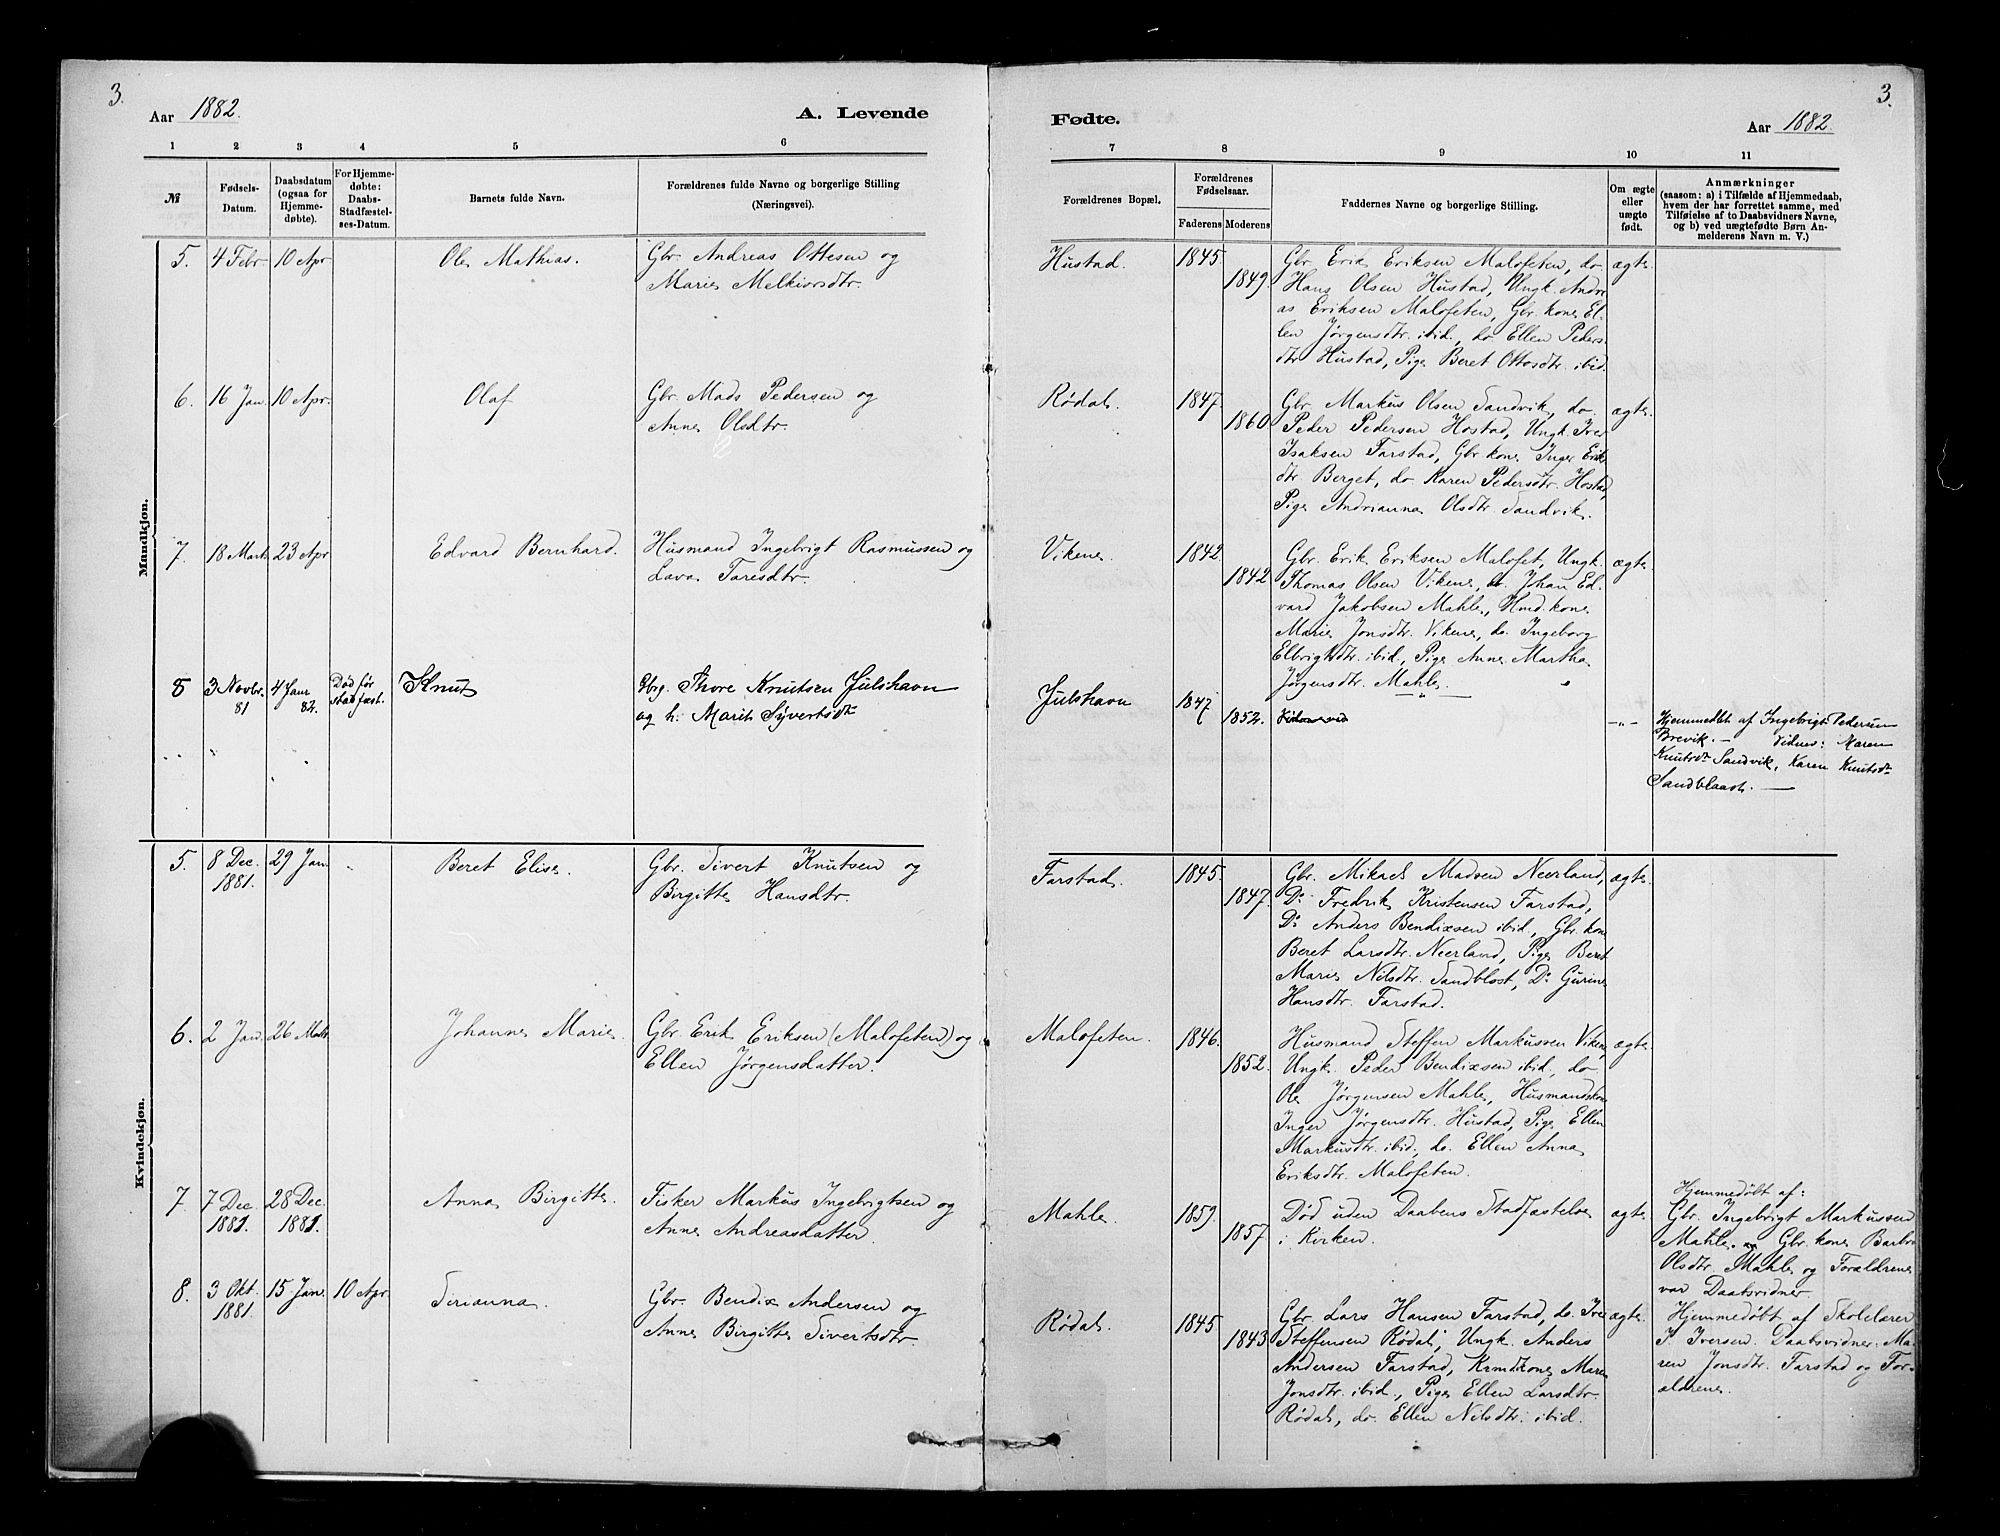 3.
Aar 1882.
A. Levende
1 2 3 4 5 6
№
Fødsels-Datum.
Daabsdatum (ogsaa for Hjemmedøbte).
For Hjemmedøbte: Daabs-Stadfæstelses-Datum.
Barnets fulde Navn.
Forældrenes fulde Navne og borgerlige Stilling
(Næringsvei).
Mandkjøn.
5. 4 Febr. 10 Apr. Ole Mathias. Gbr. Andreas Ottesen og
Marie Melkiorsdtr.
6. 16 Jan. 10 Apr. Olaf Gbr. Mads Pedersen og
Anne Olsdtr.
7. 18 Marts 23 Apr Edvard Bernhard. Husmand Ingebrigt Rasmussen og
Lava Taresdtr.
8 3 Novbr. 81 4 Janr 82. Død før Stadfæst. Knut Gbrg. Thore Knutsen Julshavn
og h. Marit Syvertsdr
Kvindekjøn.
5. 8 Dec. 1881. 29 Jan. Beret Elise. Gbr. Sivert Knutsen og
Birgitte Hansdtr.
6. 2 Jan. 26 Marts Johanne Marie. Gbr. Erik Eriksen (Malofeten) og
Ellen Jørgensdatter.
7. 7 Dec. 1881. 28 Dec. 1881. Anna Birgitte. Fisker Markus Ingebrigtsen og
Anne Andreasdatter.
8. 3 Okt. 1881. 15 Jan. 10 Apr. Sirianna. Gbr. Bendix Andersen og
Anne Birgitte Sivertsdtr
3.
Fødte.
Aar 1882.
7 8 9 10 11
Forældrenes Bopæl.
Forældrenes Fødselsaar.
Faderens Moderens
Faddernes Navne og borgerlige Stilling.
Om ægte eller uægte født.
Anmærkninger
(saasom: a) i Tilfælde af Hjemmedaab,
hvem der har forrettet samme, med
Tilføielse af to Daabsvidners Navne,
og b) ved uægtefødte Børn Anmelderens Navn m. V.)
Hustad. 1845. 1849. Gbr. Erik Eriksen Malofeten, do. ægte.
Hans Olsen Hustad, Ungk. Andre
as Eriksen Malofeten, Gbr. kone El
len Jørgensdtr. ibid., do Ellen Peders
dtr Hustad, Pige Beret Ottosdtr. ibid.
Rødal. 1847. 1860 Gbr. Markus Olsen Sandvik, do. ægte.
Peder Pedersen Hostad, Ungk. Iver
Isaksen Farstad, Gbr. kone Inger Eriks
dtr Berget, do. Karen Pedersdtr. Hostad,
Pige Andrianna Olsdtr. Sandvik.
Vikene. 1842. 1842 Gbr. Erik Eriksen Malofet, Ungk. ægte.
Thomas Olsen Vikene, do. Johan Ed
vard Jakobsen Mahle, Hmd. kone
Marie Jonsdtr. Vikene, do. Ingeborg
Elbrigtsdtr. ibid., Pige Anne Martha
Jørgensdtr. Mahle.
Julshavn 1847 1852. –"– Hjemmedbt af Ingebrigt Pedersen
Brevik. — Vidner: Maren
Knutsdr Sandvik, Karen Knutsdr
Sandblaast. —
Farstad. 1845. 1847. Gbr. Mikael Madsen Neerland, ægte.
Do Fredrik Kristensen Farstad,
Do Anders Bendixsen ibid., Gbr. kone
Beret Larsdtr. Neerland, Pige Beret
Marie Nilsdtr. Sandblost, Do Gurine
Hansdtr. Farstad.
Malofeten. 1846. 1852. Husmand Steffen Markussen Vikene, ægte.
Ungk. Peder Bendixsen ibid., do.
Ole Jørgensen Mahle, Husmandskone
Inger Jørgensdtr. Hustad, Pige Ellen
Markusdtr. ibid., do. Ellen Anna
Eriksdtr. Malofeten.
Mahle. 1859. 1857. Død uden Daabens Stadfæstelse ægte.
i Kirken.
Hjemmedøbt af:
Gbr. Ingebrigt Markussen
Mahle. Gbr. kone Barbro
Olsdtr. Mahle og Forældrene
var Daabsvidner.
Rødal. 1845. 1843 Gbr. Lars Hansen Farstad, do. Iver ægte.
Steffensen Rødal, Ungk. Anders
Andersen Farstad, Kmdkone Maren
Jonsdtr. ibid., Pige Ellen Larsdtr.
Rødal, do. Ellen Nilsdtr. ibid.
Hjemmedøbt af Skolelærer
I. Iversen. Daabsvidner: Ma
ren Jonsdtr. Farstad og For-
ældrene.